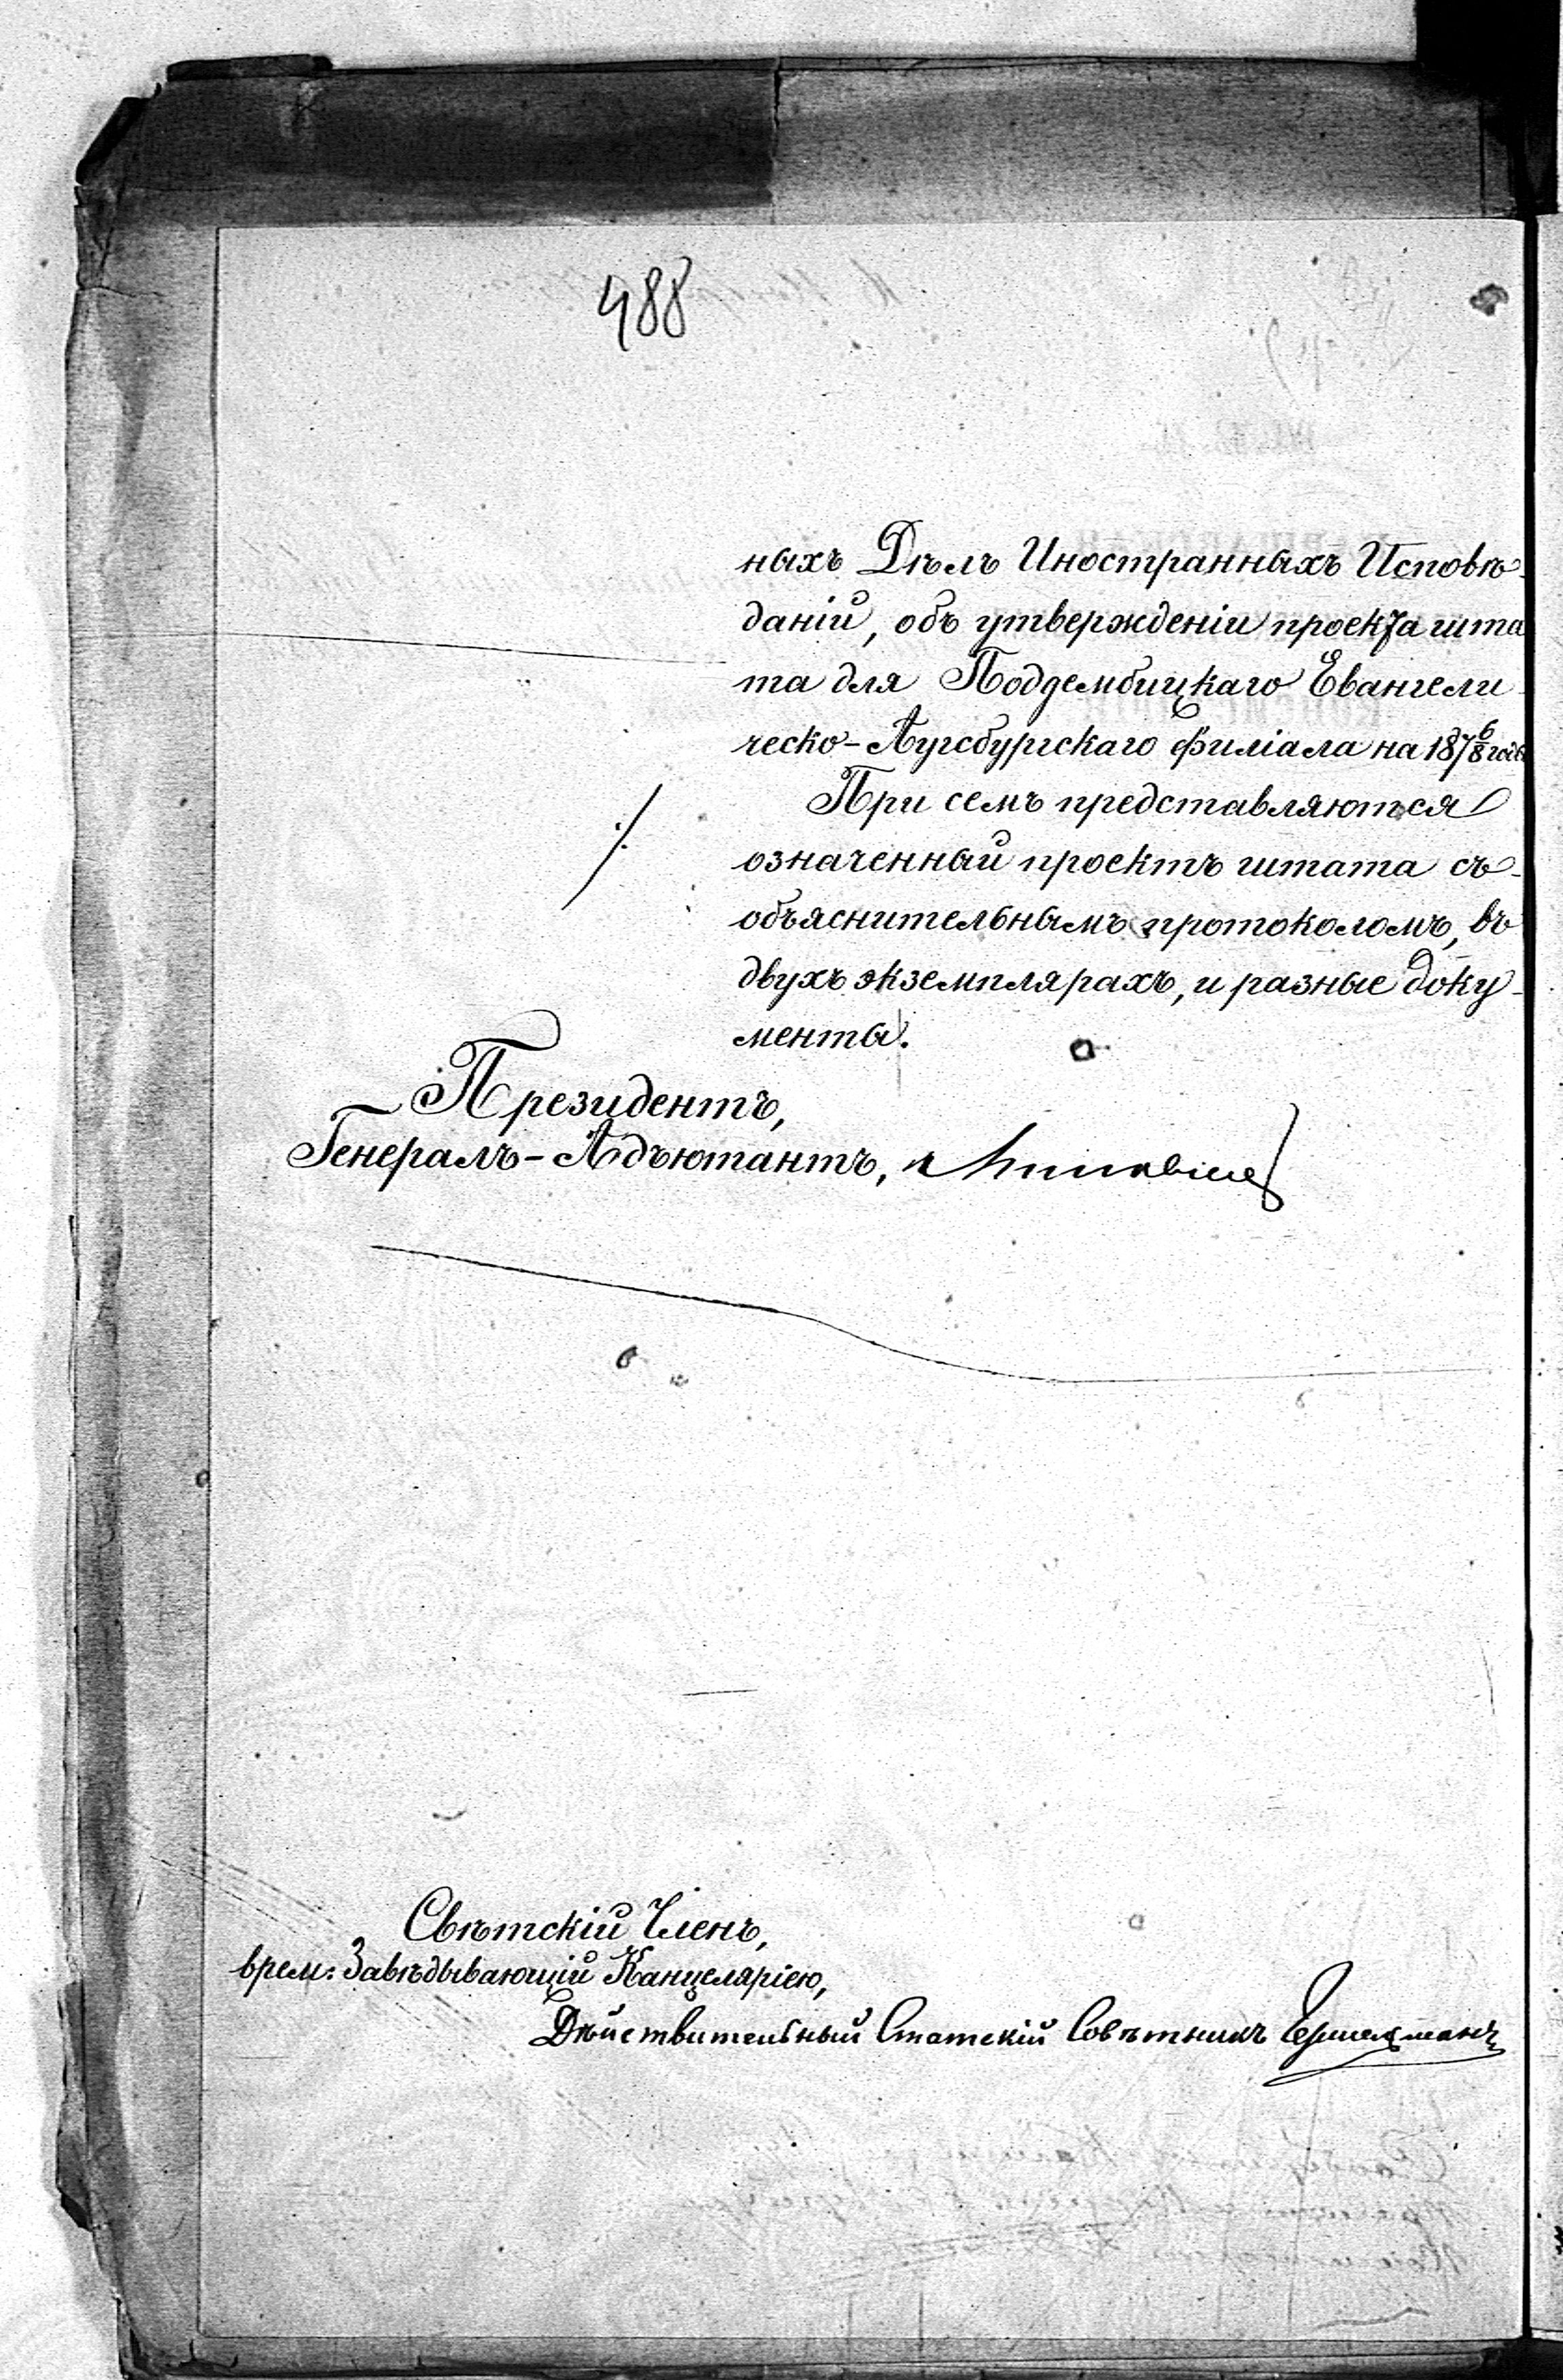 488
ныхъ Дѣлъ Иностранныхъ Исповѣ-
даній, объ утвержденіи проекта шта
та для Поддембицкаго Евангели
ческо-Аугсбургскаго Филіала на 1876/8 годъ
При семъ представляются
означенный проектъ штата съ
объяснительнымъ протоколомъ, въ
двухъ экземплярахъ, и разные доку-
менты.
Президентъ,
Генералъ-Адъютантъ,
Свѣтскій Членъ,
врем: Завѣдывающій Канцеляріею,
Дѣйствительный Статскій Совѣтникъ